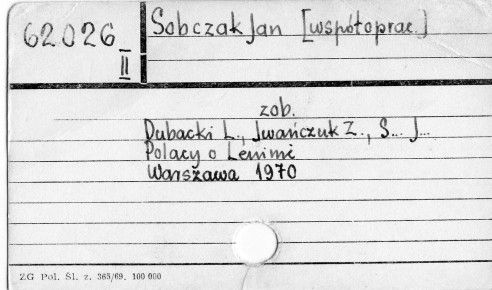 62026
II
Sobczak Jan [współoprac.]
zob.
Dubacki L., Jwańczuk Z., S... J...
Polacy o Leninie
Warszawa 1970
ZG Pol. Śl. z. 365/69. 100 000